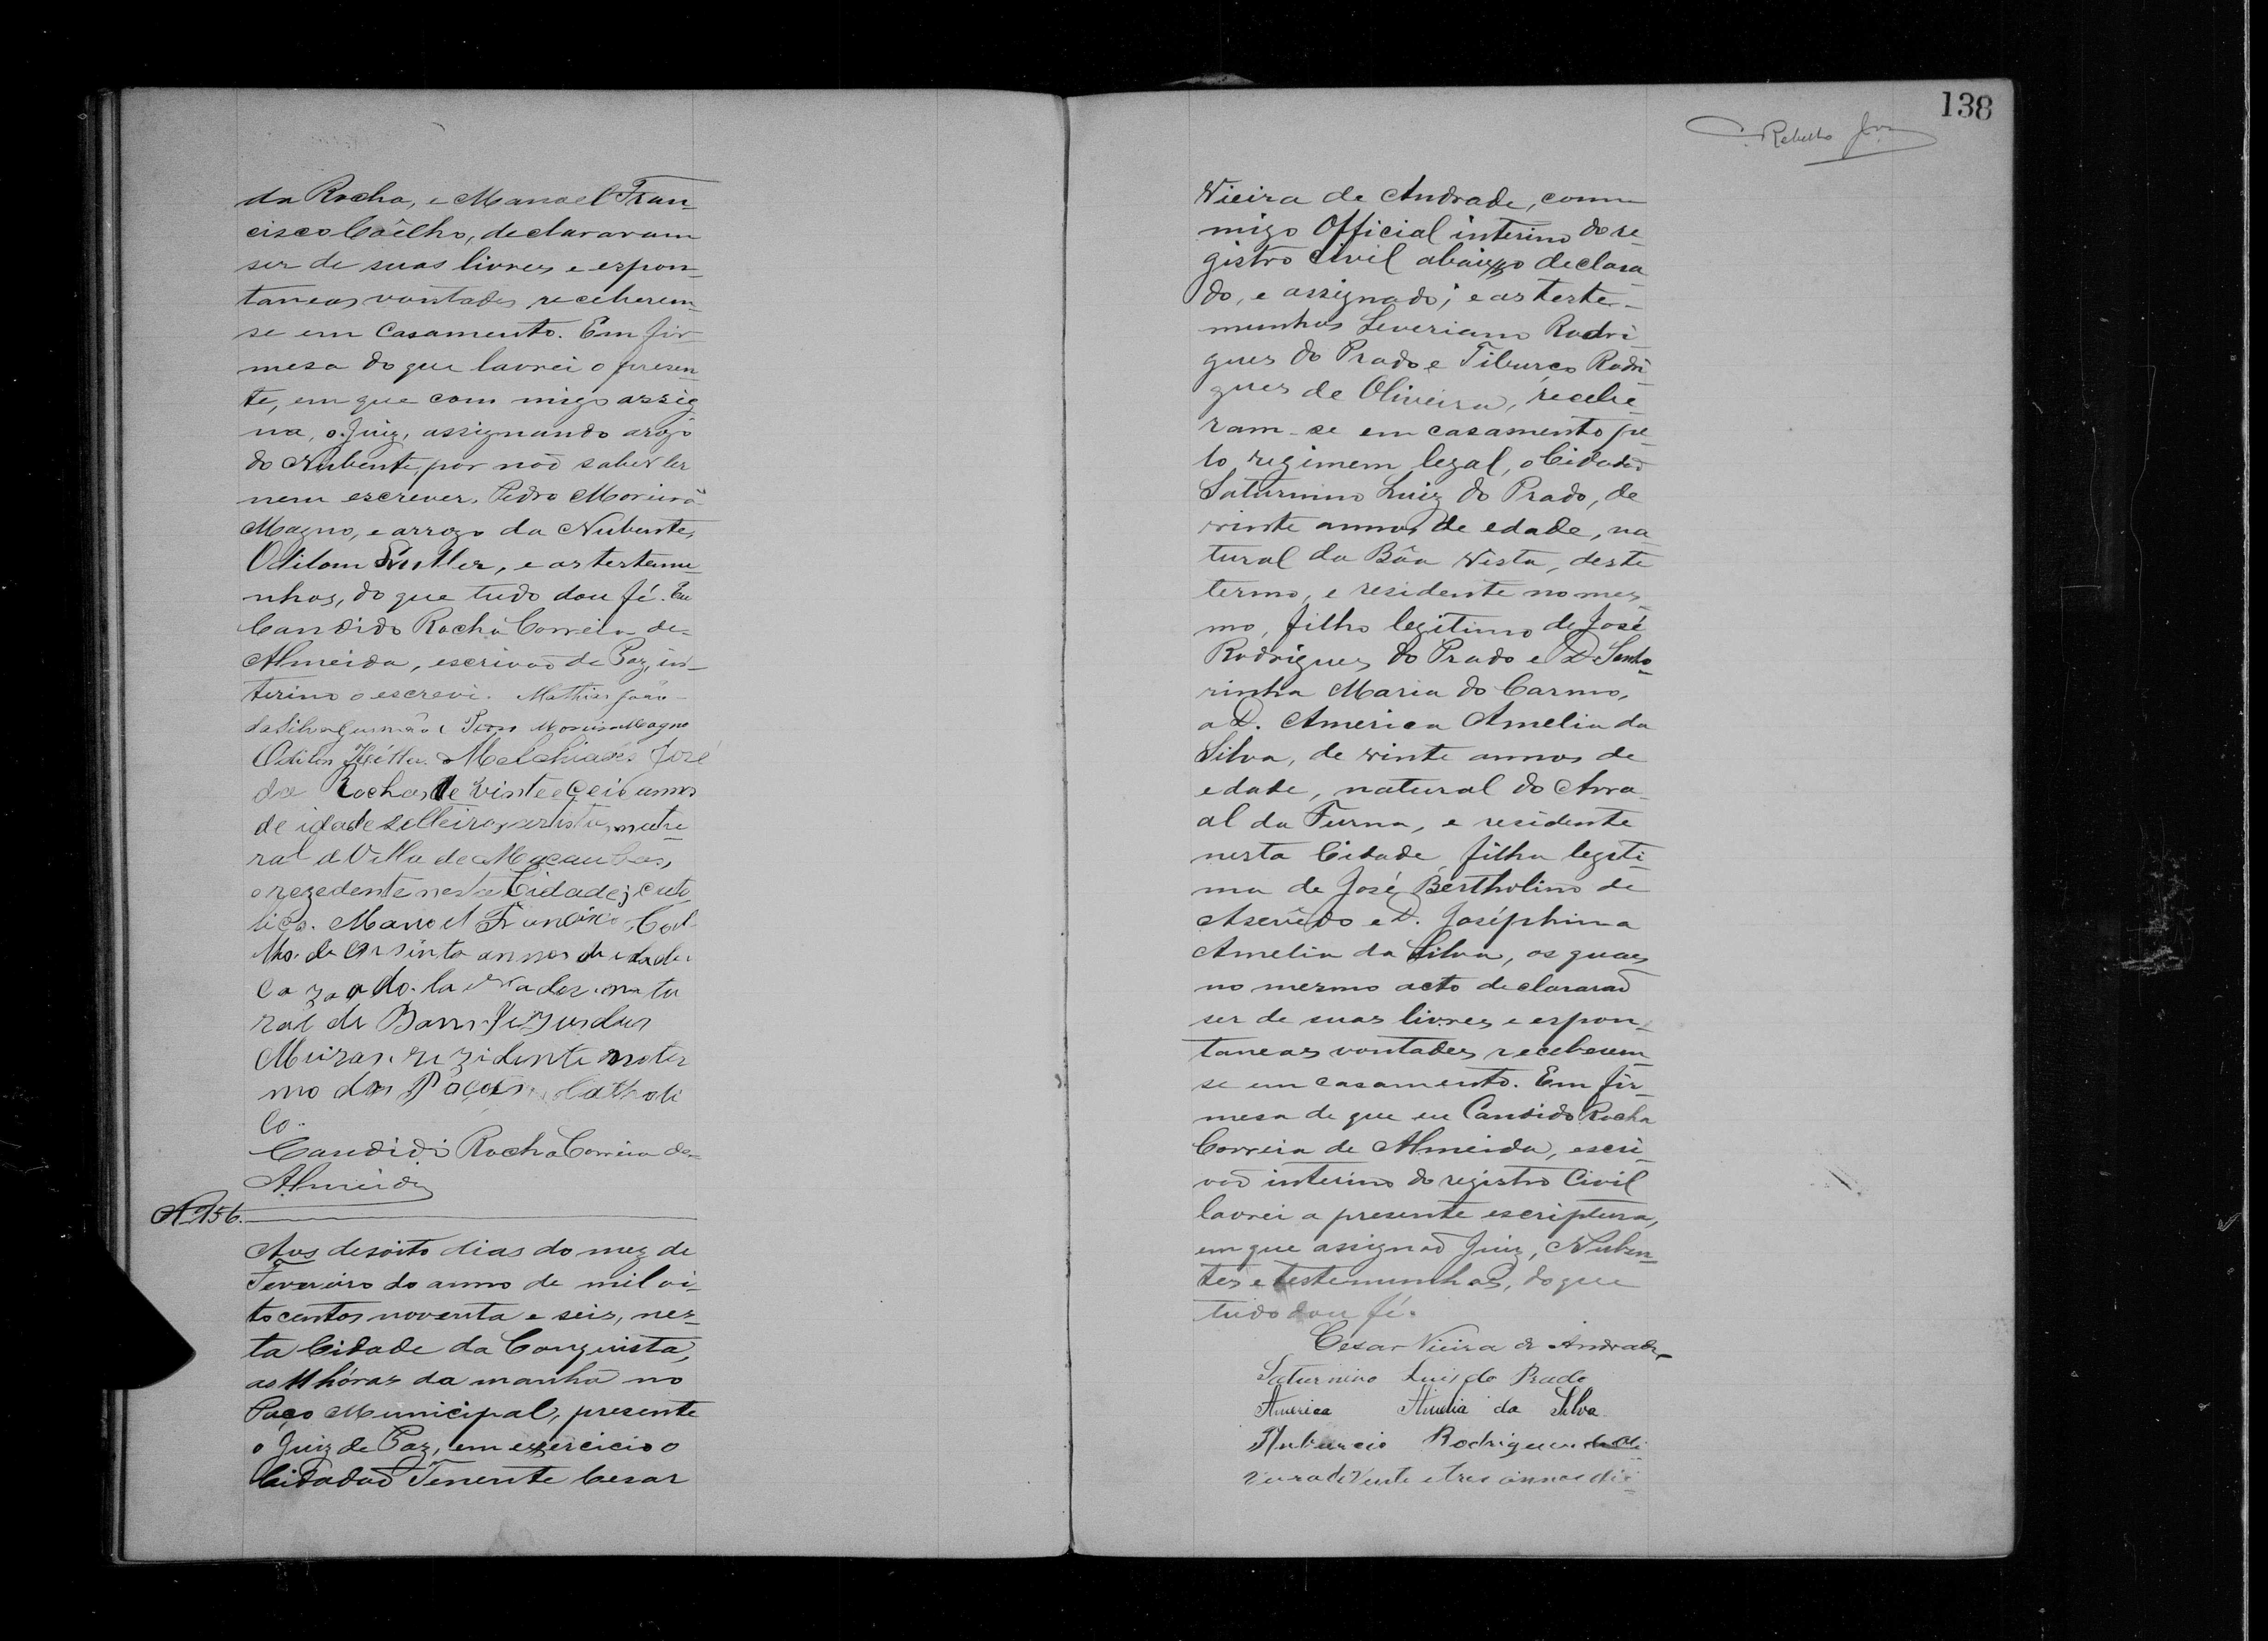 da Rocha, e Manoel Fran-
cisco Coêlho, declararam
ser de suas livres e espon-
taneas vontades receberem-
se em Casamento. Em fir-
mesa do que lavrei o presen-
te, em que com migo assig
na, o Juiz, assignando arogo
do Nubente, por não saber ler
nem escrever, Pedro Moreira
Magno, e arrogo da Nubente,
Odilom, e as testemu-
nhas, do que tudo dou fé. Eu
Candido Rocha Correia de-
Almeida, escrivão de Paz, in-
terino o escrevi. Mathias João
da Silva Gusmão Moreira Magno
Odilon Melchiades José
da Rocha, de vinte e ceis annos
de idade solteiro, artista, natu
ral d Villa de Macaubas,
e rezedente nesta Cidade; cato
lico. Manoel Francisco Coel
lho. de annos de idade.
Cazado. lavrador. natu
ral de Bom Jezus dos
Meiras. rezidente noter
mo dos Poções. Catholi
Co.
Candido Rocha Correia de=
Almeida
Nº 156.
Aos desoito dias do mez de
Fevereiro do anno de mil oi-
tocentos noventa e seis, nes-
ta Cidade da Conquista,
as 11 hóras da manhã no
Paço Municipal, presente
o Juiz de Paz, em exercicio o
Cidadão Tenente Cesar
138
Vieira de Andrade, com
migo Official interino do re-
gistro civil abaixo declara
do, e assignado; e as teste-
munhas Severiano Rodri
gues do Prado e Tiburço Rodri
gues de Oliveira, recebe-
ram-se em casamento pe
lo regimem legal, o Cidadão
Saturnino Luiz do Prado, de
vinte annos de edade, na
tural da Bôa Vista, deste
termo, e residente no mes
mo, filho legitimo de José
Rodrigues do Prado e D.
rinha Maria do Carmo,
a D. America Amelia da
Silva, de vinte annos de
edade, natural do Arra-
al da Furna, e residente
nesta Cidade, filha legiti-
ma de José Bertholino de
Asevêdo e D. Joséphina
Amelia da Silva, os quaes
no mesmo acto declararão
ser de suas livres e espon-
taneas vontades receberem
se em casamento. Em fir-
mesa de que eu Candido Rocha
Correia de Almeida, escri-
vão interino do registro Civil
lavrei a presente escriptura,
em que assignão Juiz, Nuben-
tes e testemunhas, do que
tudo dou fé.
Cesar Vieira de Andrade
Saturnino Luis do Prado
America Amelia da Silva
Rodrigues de Oli
veira de vente e tres annos di